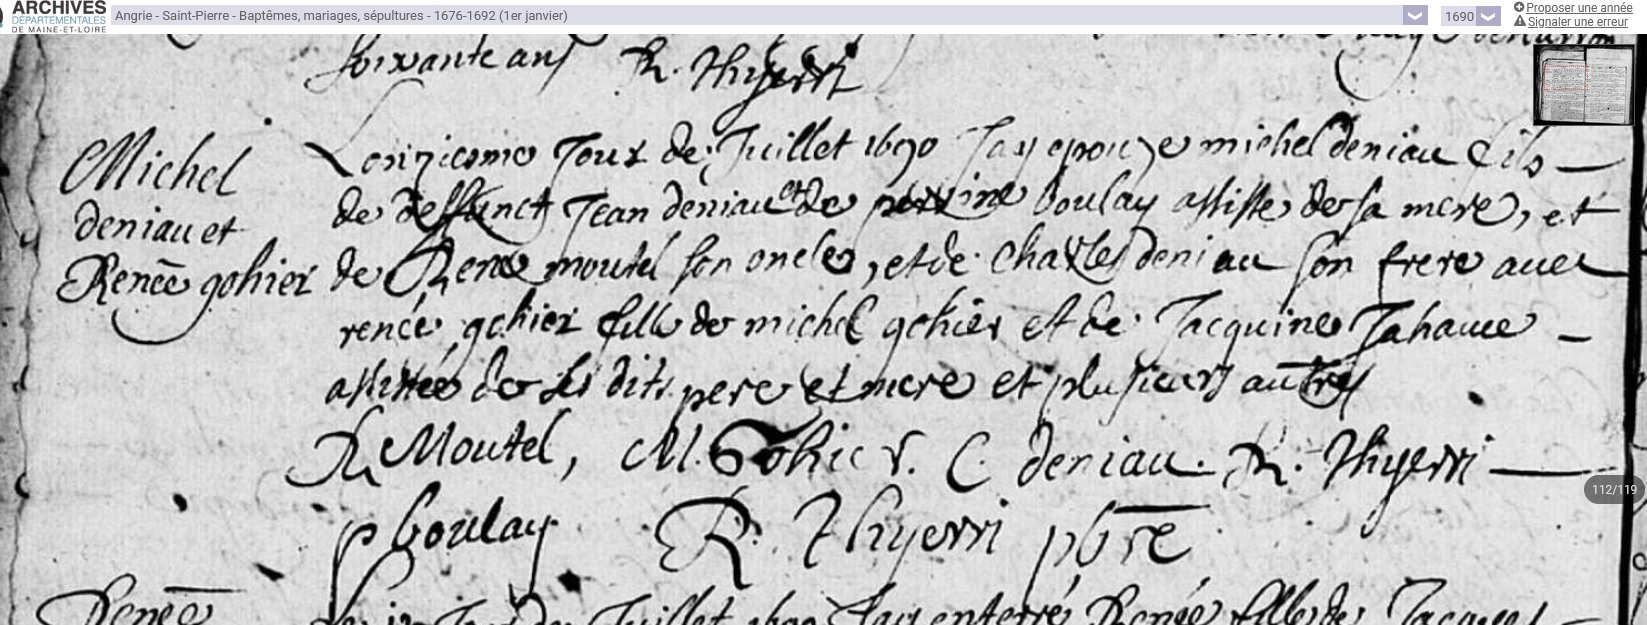 ARCHIVES
DÉPARTEMENTALES
DE MAINE-ET-LOIRE
Angrie - Saint-Pierre - Baptêmes, mariages, sépultures - 1676-1692 (1er janvier)
1690
Proposer une année
Signaler une erreur
soixante ans R. Thyerri
Michel
deniau et
Renée gohier
Lonziesme Jour de Juillet 1690 Jay epouze michel deniau fils
de deffunct Jean deniau et de perrine boulay assiste de sa mere, et
de Rene moutel son oncle, et de Charles deniau son frere avec
renée gohier fille de michel gohier et de Jacquine Jahaue
assistée de ses dits pere et mere et plusieurs autres
R Moutel, M. Gohier. C. deniau. R. Thyerri
p boulay R. Thyerri pbre
112/119
Renée
Juillet 1690 Jay enterré Renée fille de Jacques